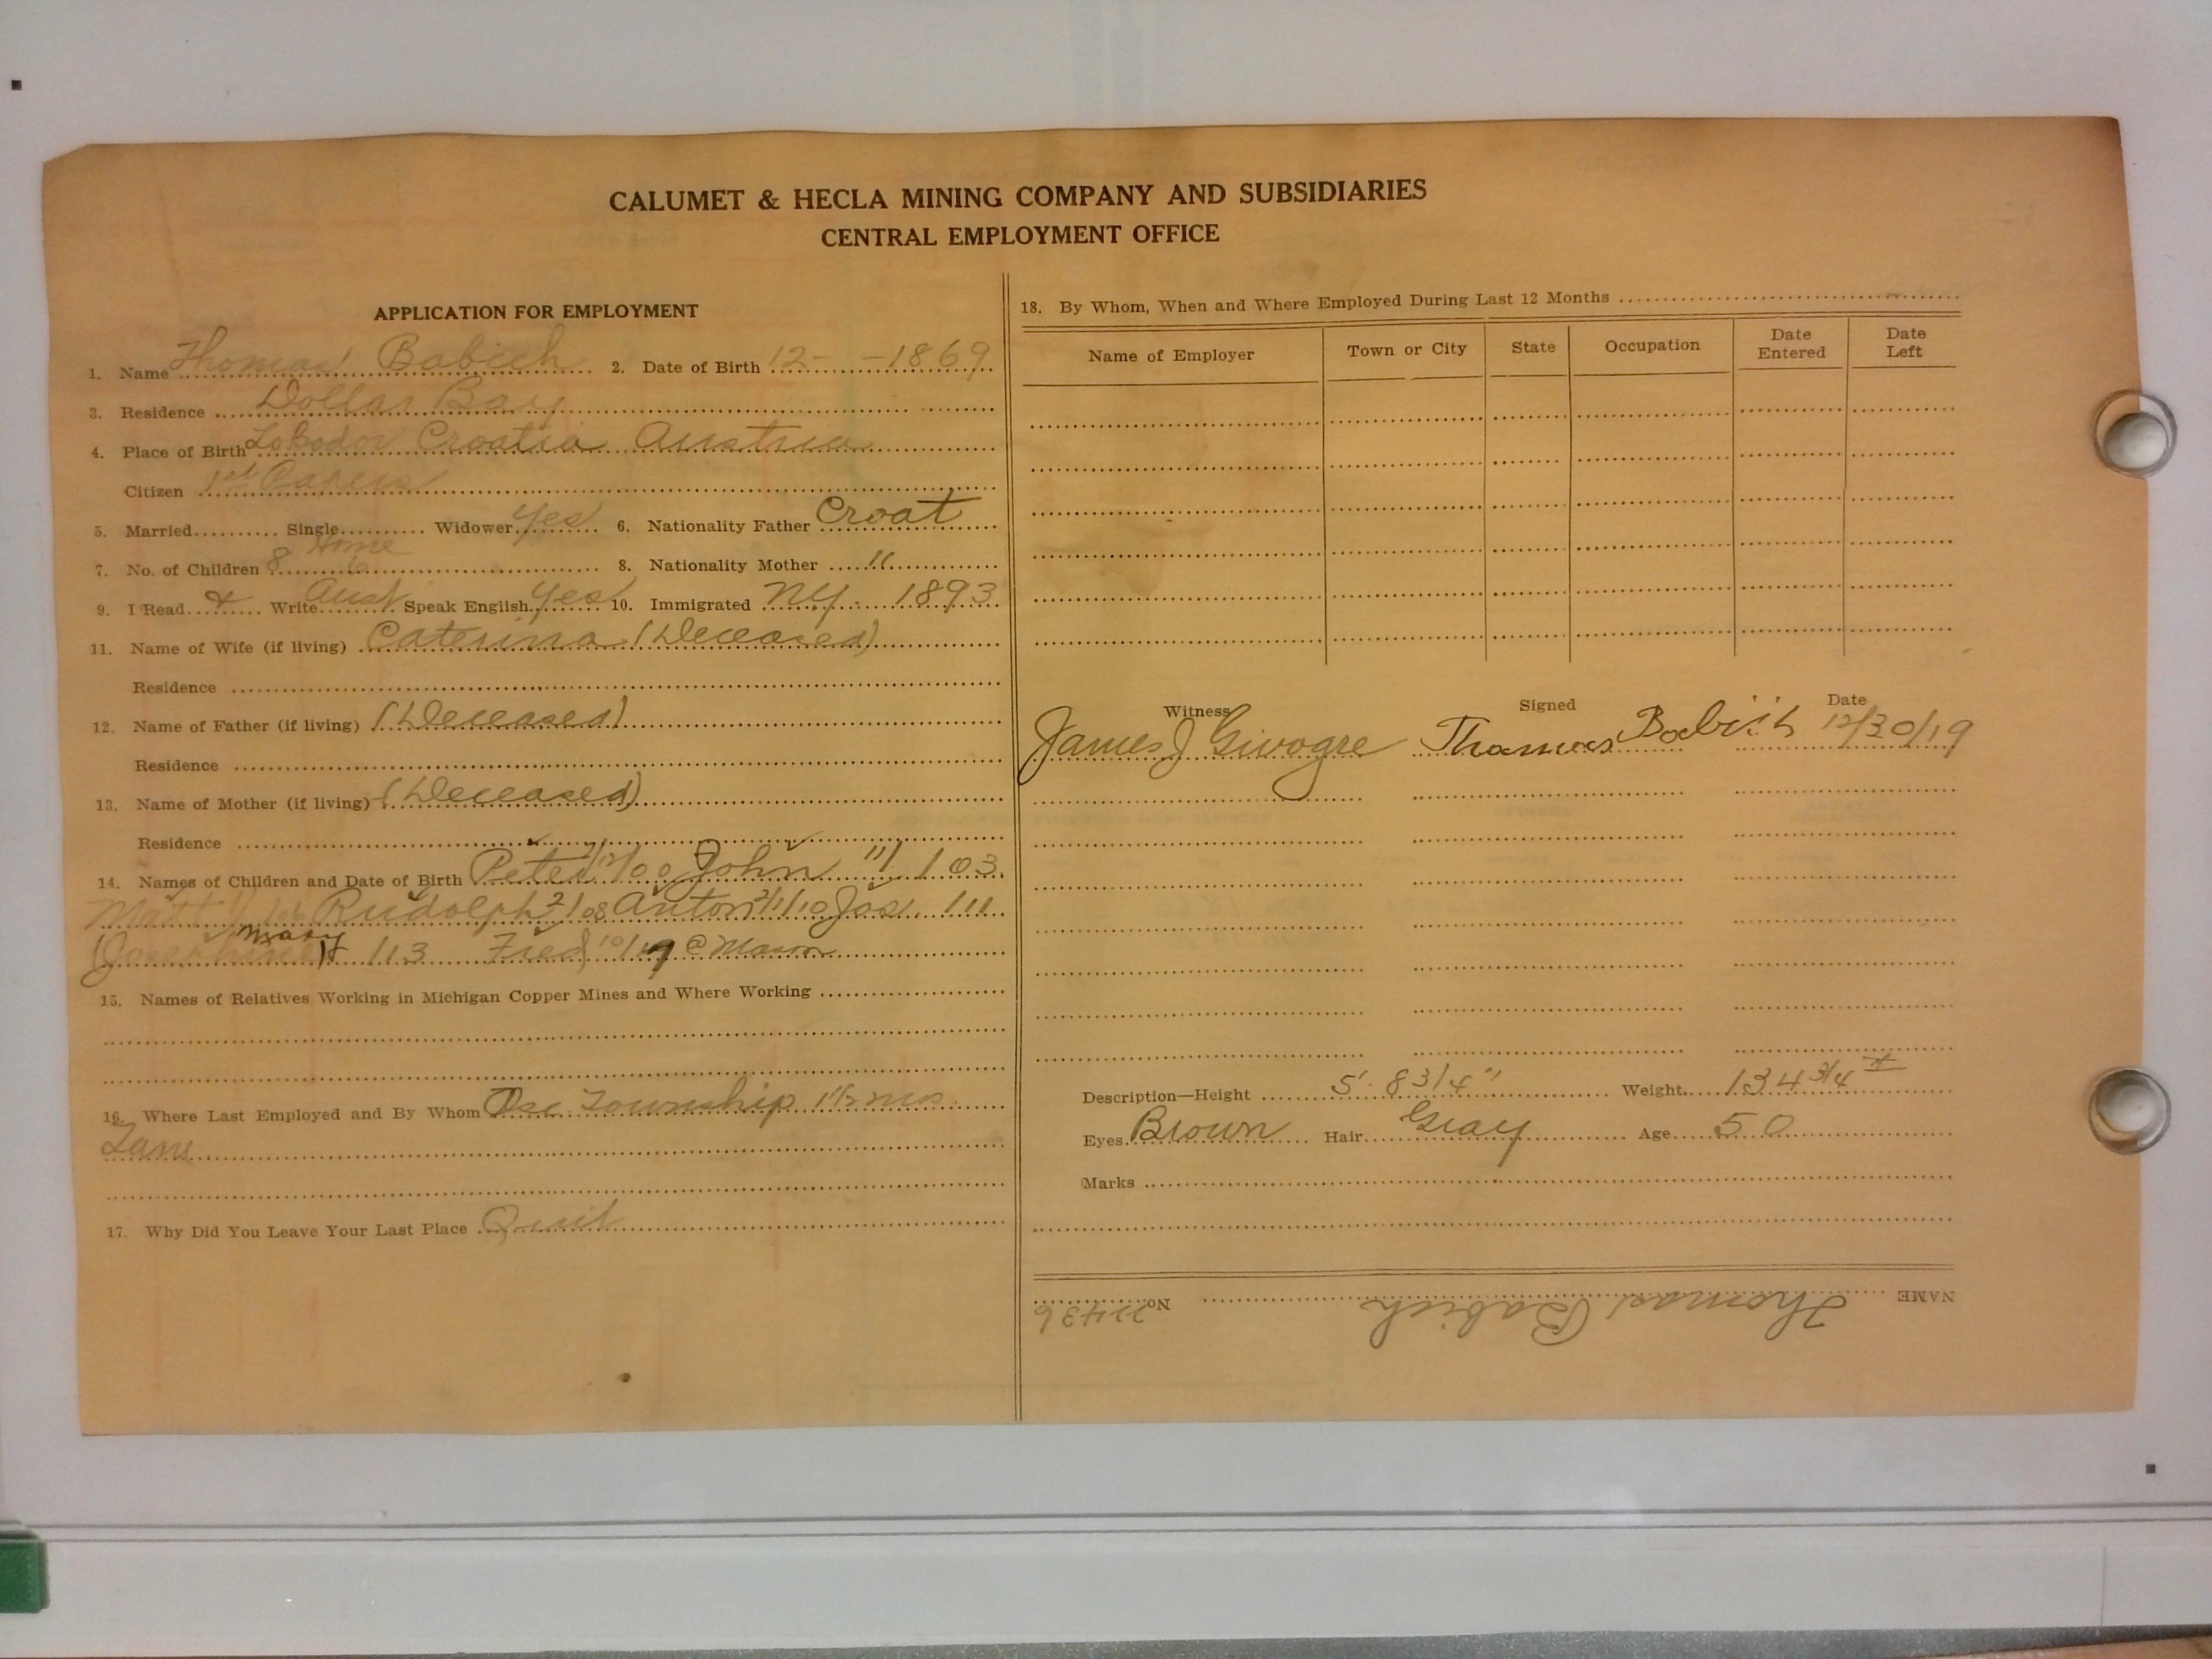 CALUMET & HECLA MINING COMPANY AND SUBSIDIARIES
CENTRAL EMPLOYMENT OFFICE
APPLICATION FOR EMPLOYMENT
1. Name Thomas Babich 2. Date of Birth 12- -1869
3. Residence Dollar Bay
4. Place of Birth Croatia Austria
Citizen 1st Papers
5. Married Single Widower Yes 6. Nationality Father Croat
Home
7. No. of Children 8 6 8. Nationality Mother "
9. I Read & Write Aust Speak English Yes 10. Immigrated NY. 1893
11. Name of Wife (if living) Caterina (Deceased)
Residence
12. Name of Father (if living) (Deceased)
Residence
13. Name of Mother (if living) (Deceased)
Residence
14. Names of Children and Date of Birth Peter John 03
Matt Rudolph 2/08 Anton Jos. 111
(Josephine) Mary 113 Fred 10/17 @ Mason
15. Names of Relatives Working in Michigan Copper Mines and Where Working
16. Where Last Employed and By Whom Township 1 1/2 mos.
17. Why Did You Leave Your Last Place Quit
18. By Whom, When and Where Employed During Last 12 Months
Name of Employer Town or City State Occupation Date Entered Date Left
Witness Signed Date
James J Givogre Thomas Babich 12/30/19
Description—Height 5' 8 3/4" Weight 134 3/4 #
Eyes Brown Hair Gray Age 50
Marks
NAME Thomas Babich No. 22436